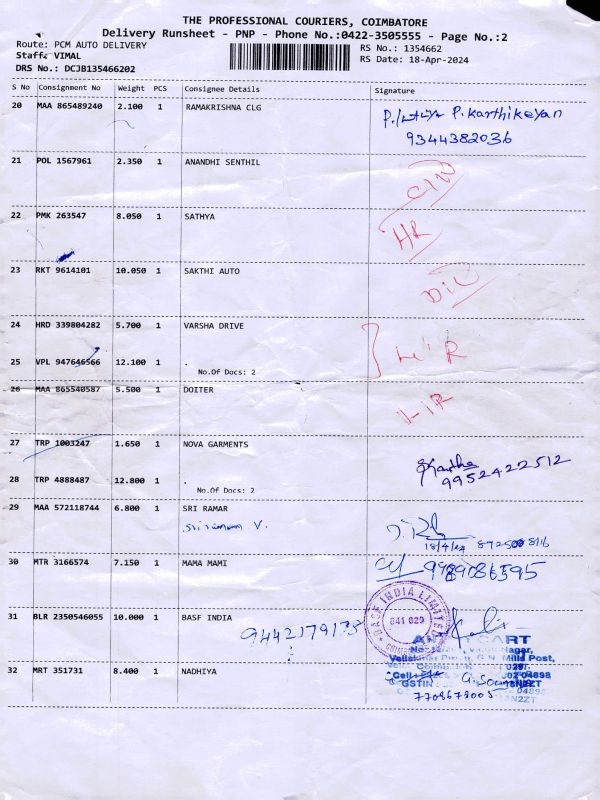 THE PROFESSIONAL COURIERS, COIMBATORE
Delivery Runsheet - PNP - Phone No.:0422-3505555 - Page No.:2
Route: PCM AUTO DELIVERY
RS No.: 1354662
Staff: VIMAL
RS Date: 18-Apr-2024
DRS No.: DCJB135466202
S No Consignment No Weight PCS Consignee Details Signature
20 MAA 865489240 2.100 1 RAMAKRISHNA CLG P.Karthikeyan
9344382036
21 POL 1567961 2.350 1 ANANDHI SENTHIL
22 PMK 263547 8.050 1 SATHYA HR
23 RKT 9614101 10.050 1 SAKTHI AUTO
24 HRD 339804282 5.700 1 VARSHA DRIVE
25 VPL 947646566 12.100 1 .
No.Of Docs: 2
26 MAA 865540587 5.500 1 DOITER
27 TRP 1003247 1.650 1 NOVA GARMENTS
9952422512
28 TRP 4888487 12.800 1 .
No.Of Docs: 2
29 MAA 572118744 6.800 1 SRI RAMAR
V.
18/4/24
30 MTR 3166574 7.150 1 MAMA MAMI 9989086595
31 BLR 2350546055 10.000 1 BASF INDIA
BASF INDIA LIMITED
641 029
32 MRT 351731 8.400 1 NADHIYA
7708673005